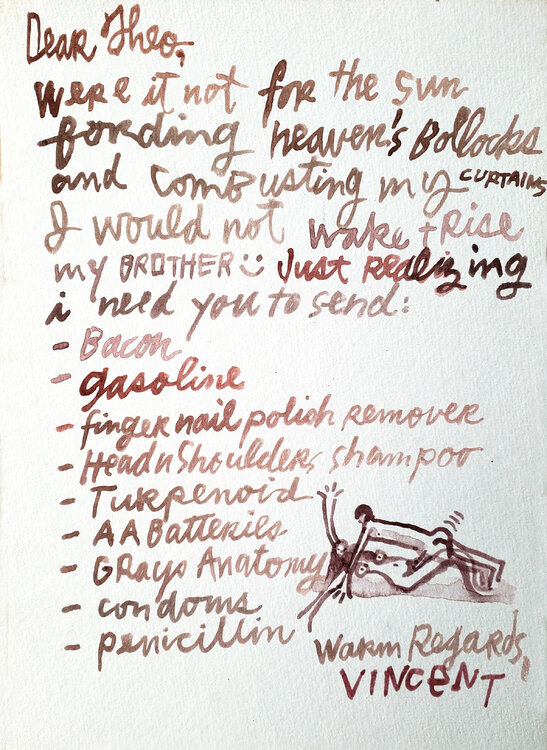 Dear Theo,
Were it not for the sun
fording heaven's Bollocks
and combusting my CURTAINS
I would not wake + Rise
my BROTHER Just Realizing
i need you to send:
- Bacon
- gasoline
- finger nail polish remover
- Head n Shoulders shampoo
- Turpenoid
- AA Batteries
- Grays Anatomy
- condoms
- penicillin
Warm Regards,
VINCENT